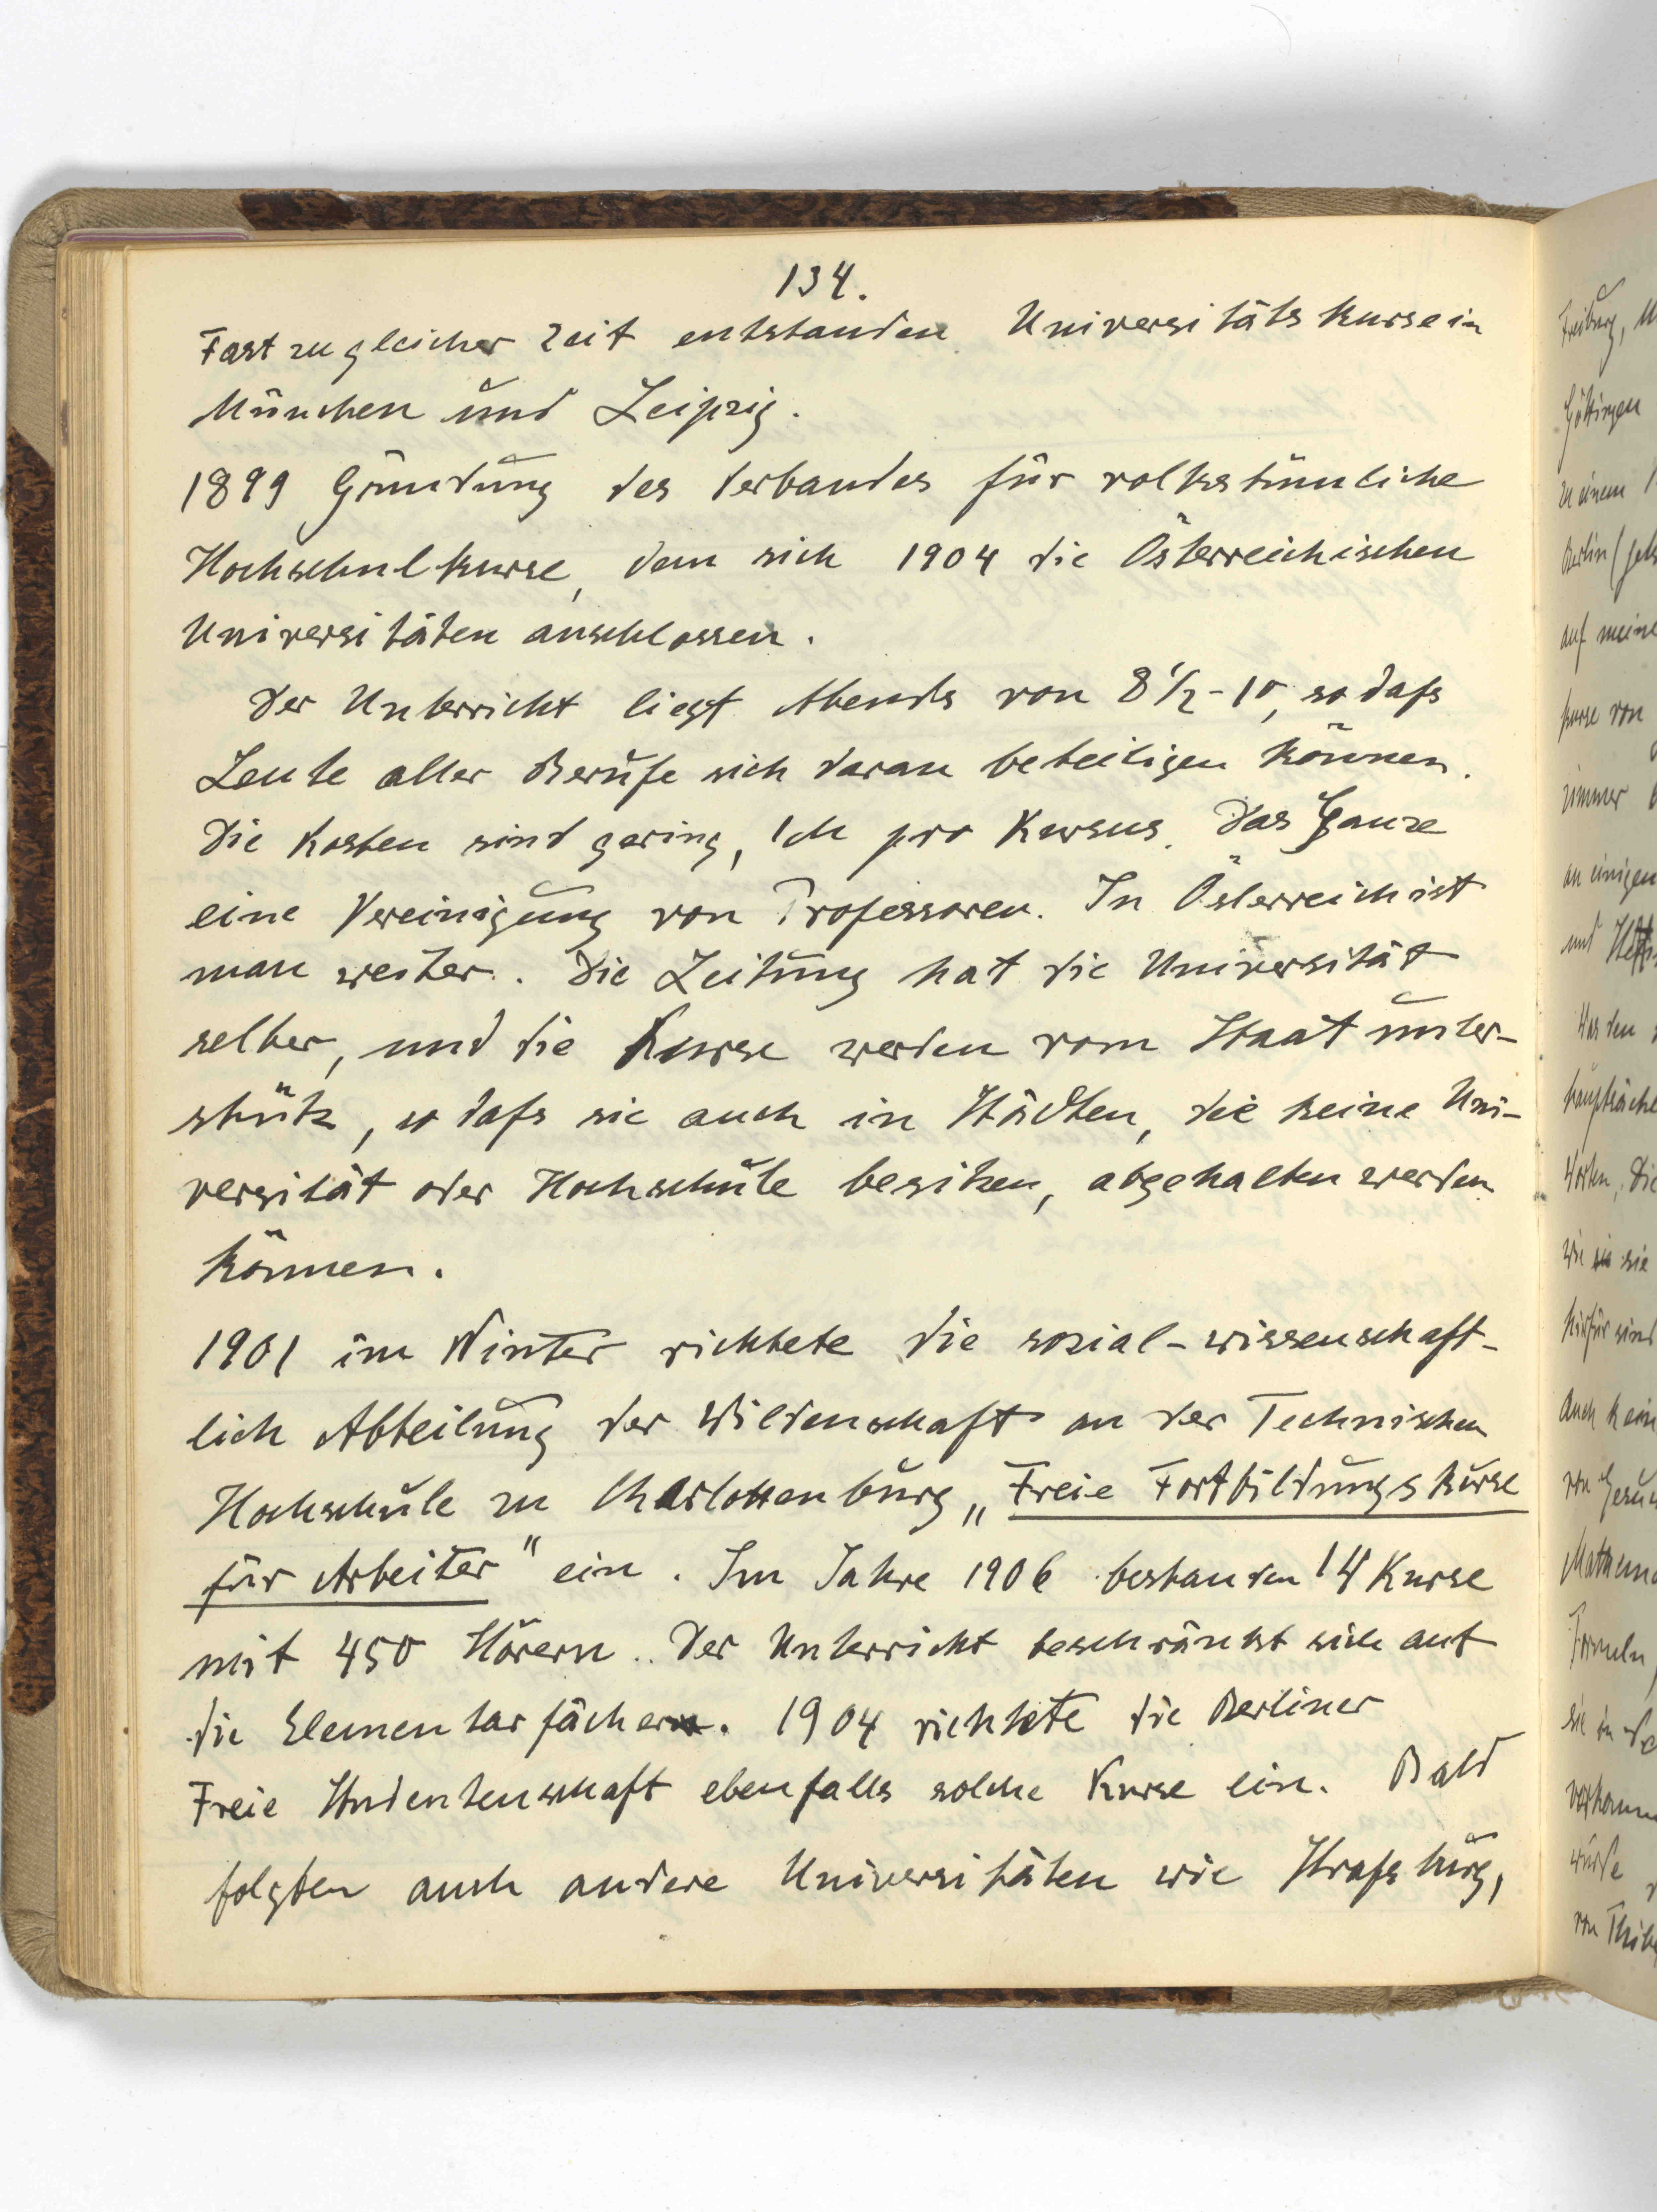 134.
Fast zu gleicher Zeit entstanden Universitäts Kurse in
München und Leipzig.
1899 Gründung des Verbandes für volkstümliche
Hochschulkurse, dem sich 1904 die Österreichischen
Universitäten anschlossen.
Der Unterricht liegt Abends von 8 1/2 - 10, so daſs
Leute aller Berufe sich daran beteiligen können.
Die Kosten sind gering, 1 M pro Kursus. Das Ganze
eine Vereinigung von Professoren. In Österreich ist
man weiter. Die Leitung hat die Universität
selber, und die Kurse werden vom Staat unter-
stütz, so daſs sie auch in Städten, die keine Uni-
versität oder Hochschule besitzen, abgehalten werden
können.
1901 im Winter richtete die sozial-wissenschaft-
lich Abteilung der Wildenschaft an der Technischen
Hochschule zu Charlottenburg „Freie Fortbildungskurse
für Arbeiter" ein. Im Jahre 1906 bestanden 14 Kurse
mit 450 Hörern.. Der Unterricht beschränkt sich auf
die Elementarfächer. 1904 richtete die Berliner
Freie Studentenschaft ebenfalls solche Kurse ein. Bald
folgten auch andere Universitäten wie Straſsburg,
Freiburg,
Göttingen
zu einem
Berlin
auf meine
kurse von
zimmer
an einigen
und
wie sie
Auch kein
Formeln
würde
von